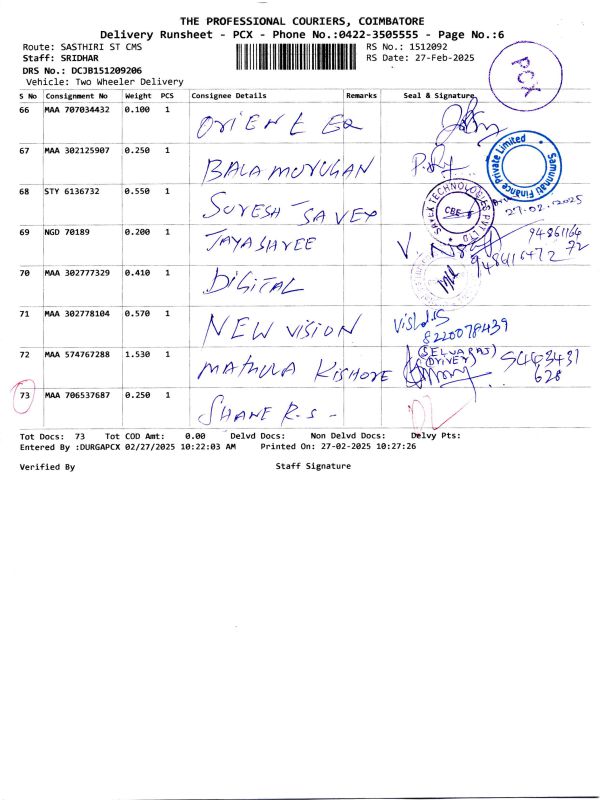 THE PROFESSIONAL COURIERS, COIMBATORE
Delivery Runsheet - PCX - Phone No.:0422-3505555 - Page No.:6
Route: SASTHIRI ST CMS
RS No.: 1512092
Staff: SRIDHAR
RS Date: 27-Feb-2025
DRS No.: DCJB151209206
Vehicle: Two Wheeler Delivery
PCX
S No Consignment No Weight PCS Consignee Details Remarks Seal & Signature
66 MAA 707034432 0.100 1 ORIENT EQ
67 MAA 302125907 0.250 1 BALA MURUGAN
Samunnati Finance Private Limited
68 STY 6136732 0.550 1 SURESH SAVEX
SAVEX TECHNOLOGIES PVT LTD
CBE
27-02-2025
69 NGD 70189 0.200 1 JAYASHREE
70 MAA 302777329 0.410 1 DIGITAL
71 MAA 302778104 0.570 1 NEW VISION
8220078439
72 MAA 574767288 1.530 1 MATHULA KISHORE
(SELVARAJ)
(DRIVER)
73 MAA 706537687 0.250 1 SHANE R.S -
Tot Docs: 73 Tot COD Amt: 0.00 Delvd Docs: Non Delvd Docs: Delvy Pts:
Entered By :DURGAPCX 02/27/2025 10:22:03 AM Printed On: 27-02-2025 10:27:26
Verified By Staff Signature